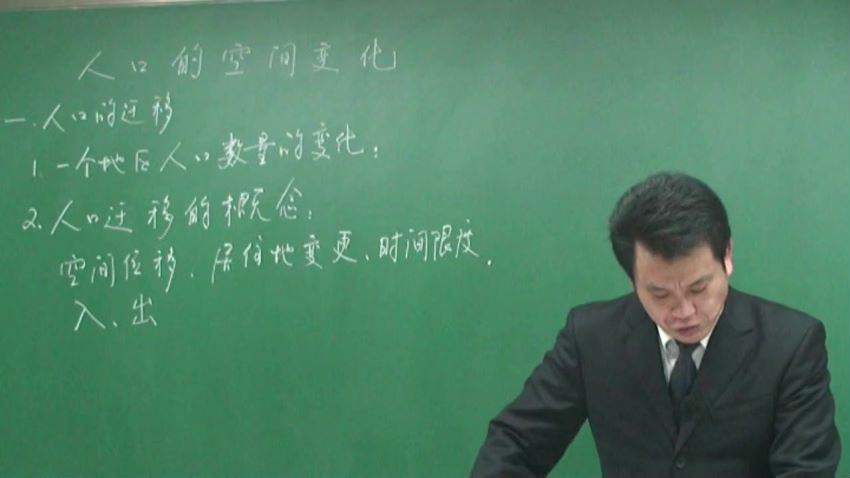 人口的空间变化
一.人口的迁移
1.一个地区人口数量的变化：
2.人口迁移的概念：
空间位移、居住地变更、时间限度.
入、出